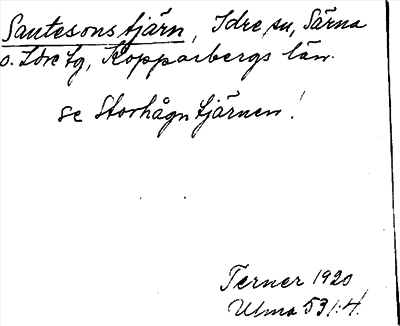 Santesonstjärn, Idre sn, Särna
o. Idre tg, Kopparbergs län.
se Storhågntjärnen!
Terner 1920
Ulma 531:4.